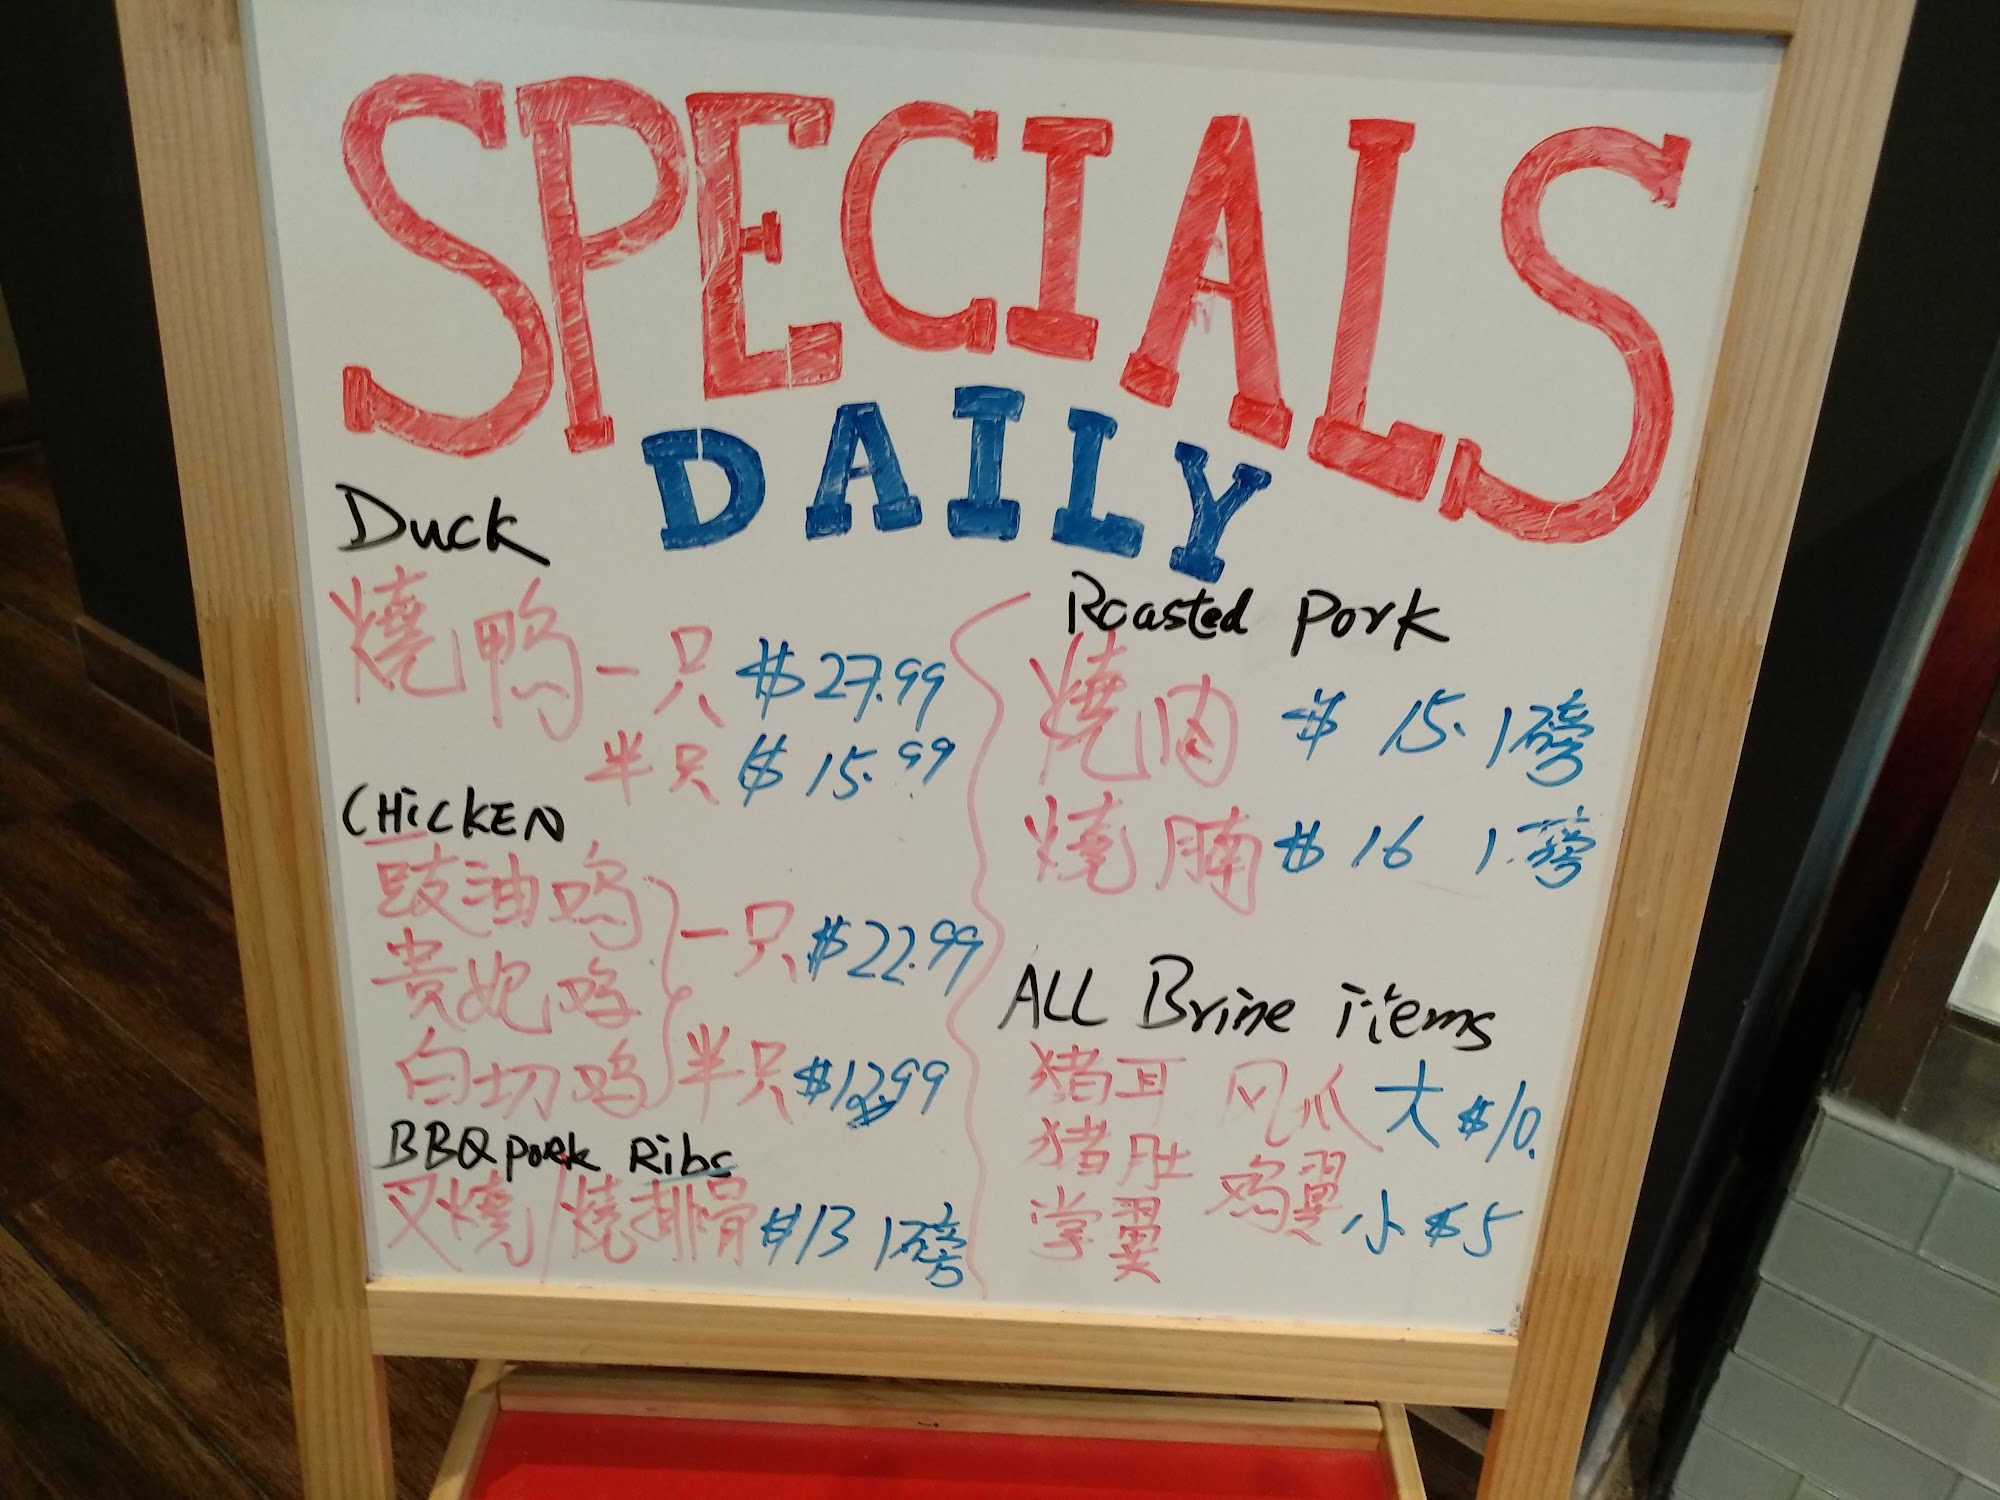 SPECIALS
DAILY
Duck
燒鴨 一只 $27.99
半只 $15.99
CHiCKEN
豉油鸡
贵妃鸡
白切鸡
一只 $22.99
半只 $12.99
BBQ Pork Ribs
叉燒/燒排骨 $13 1磅
Roasted Pork
燒肉 $15. 1磅
燒腩 $16 1磅
ALL Brine items
猪耳 凤爪 大 $10.
猪肚 鸡翼 小 $5
掌翼